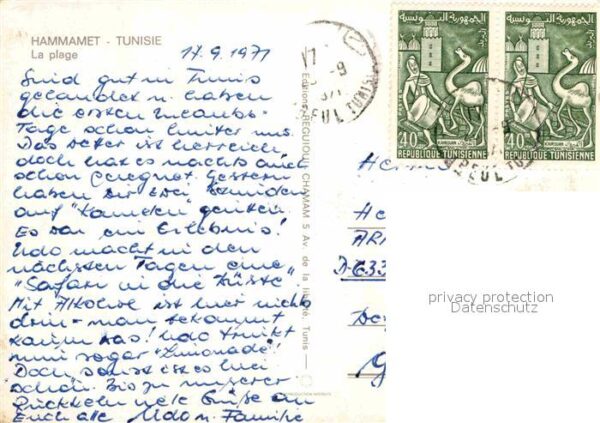 HAMMAMET - TUNISIE
La plage
17.9.1971
Sind gut in Tunis
gelandet u. haben
die ersten Urlaubs-
Tage schon hinter uns.
Das Wetter ist herrlich,
doch hat es nachts auch
schon geregnet. Gestern
haben wir zwei Stunden
auf "Kamelen" geritten.
Es war ein Erlebnis!
Udo macht in den
nächsten Tagen eine
"Safari in die Wüste".
Mit Alkohol ist hier nichts
drin - man bekommt
kaum was! Udo trinkt
nun sogar "Limonade"!
Doch sonst ist es hier
schön. Bis zu unserer
Rückkehr viele Grüße an
Euch alle Udo u. Familie
Editions REGUIGUI CHAMAM 5 Av. de la liberté, Tunis
REPRODUCTION INTERDITE
الجمهورية التونسية
البريد
40
KAIROUAN
REPUBLIQUE TUNISIENNE
الجمهورية التونسية
البريد
40
KAIROUAN
REPUBLIQUE TUNISIENNE
He
D-633
privacy protection
Datenschutz